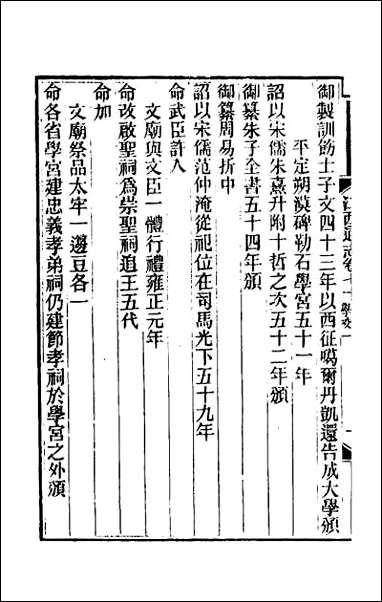 江西通志卷七十 學校一
御製訓飭士子文四十三年以西征噶爾丹凱還告成大學頒
平定朔漠碑勒石學宮五十一年
詔以宋儒朱熹升附十哲之次五十二年頒
御纂朱子全書五十四年頒
御纂周易折中
詔以宋儒范仲淹從祀位在司馬光下五十九年
命武臣許入
文廟與文臣一體行禮雍正元年
命改啟聖祠為崇聖祠追王五代
命加
文廟祭品太牢一籩豆各一
命各省學宮建忠義孝弟祠仍建節孝祠於學宮之外頒